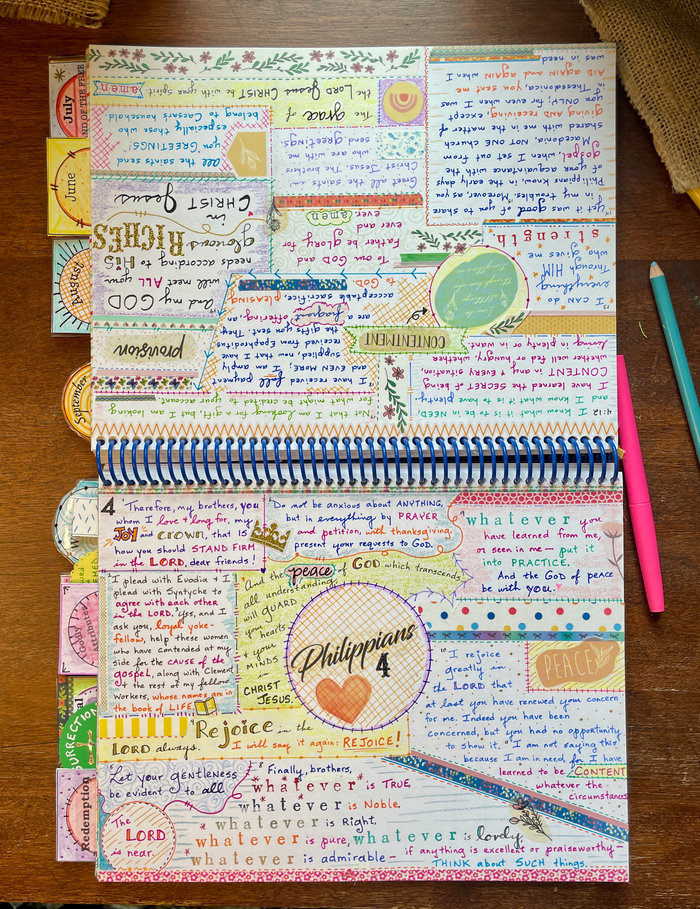 4
Therefore, my brothers, you
whom I love & long for, my
JOY and CROWN, that is
how you should STAND FIRM
in the LORD, dear friends!
I plead with Euodia + I
plead with Syntyche to
agree with each other
in the LORD. Yes, and I
ask you, loyal yoke-
fellow, help these women
who have contended at my
side for the CAUSE of the
gospel, along with Clement
+ the rest of my fellow
workers, whose names are in
the book of LIFE.
Rejoice in the
LORD always.
I will say it again: REJOICE!
Let your gentleness
be evident to all
The
LORD
is near.
Do not be anxious about ANYTHING,
but in everything by PRAYER
and petition, with thanksgiving,
present your requests to GOD.
And the peace of GOD which transcends
all understanding
will GUARD
your
hearts
+ your
MINDS
in
CHRIST
JESUS.
Philippians
4
Finally, brothers,
whatever is TRUE,
whatever is Noble,
whatever is Right,
whatever is pure, whatever is lovely,
whatever is admirable—
if anything is excellent or praiseworthy—
THINK about SUCH things.
whatever you
have learned from me,
or seen in me — put it
into PRACTICE.
And the GOD of peace
be with you.
PEACE
I rejoice
greatly in
the LORD that
at last you have renewed you concern
for me. Indeed you have been
concerned, but you had no opportunity
to show it. I am not saying this
because I am in need, for I have
learned to be CONTENT
whatever the
circumstances
4:12
I know what it is to be in NEED,
and I know what it is to have plenty.
I have learned the SECRET of being
CONTENT in any + EVERY situation,
whether well fed or hungry, whether
living in plenty or in want.
CONTENTMENT
I CAN do
everything
Through HIM
who gives me
strength
Yet it was good of you to share
in my troubles. Moreover, as you
Philippians know, in the early days
of your acquaintance with the
gospel, when I set out from
Macedonia, NOT ONE church
shared with me in the matter of
giving and receiving, except
you ONLY; for even when I was
in Thessalonica, you sent me
AID again and again when I
was in need
Not that I am looking for a gift, but I am looking
for what might be credited to your account.
I have received full payment
and EVEN MORE; I am amply
supplied, now that I have
received from Epaphroditus
the gifts you sent. They
are a fragrant offering, an
acceptable sacrifice, pleasing
to GOD
provision
And my GOD
will meet ALL your
needs according to HIS
glorious RICHES
in
CHRIST Jesus
To our GOD and
Father be glory for
ever and ever
amen
Greet all the saints in
Christ Jesus. The brothers
who are with me
send greetings.
all the saints send
you GREETINGS!
especially those who
belong to Caesar's household.
The grace of
the LORD JESUS CHRIST be with your Spirit.
amen
July
June
August
September
Godly
Attributes
Redemption